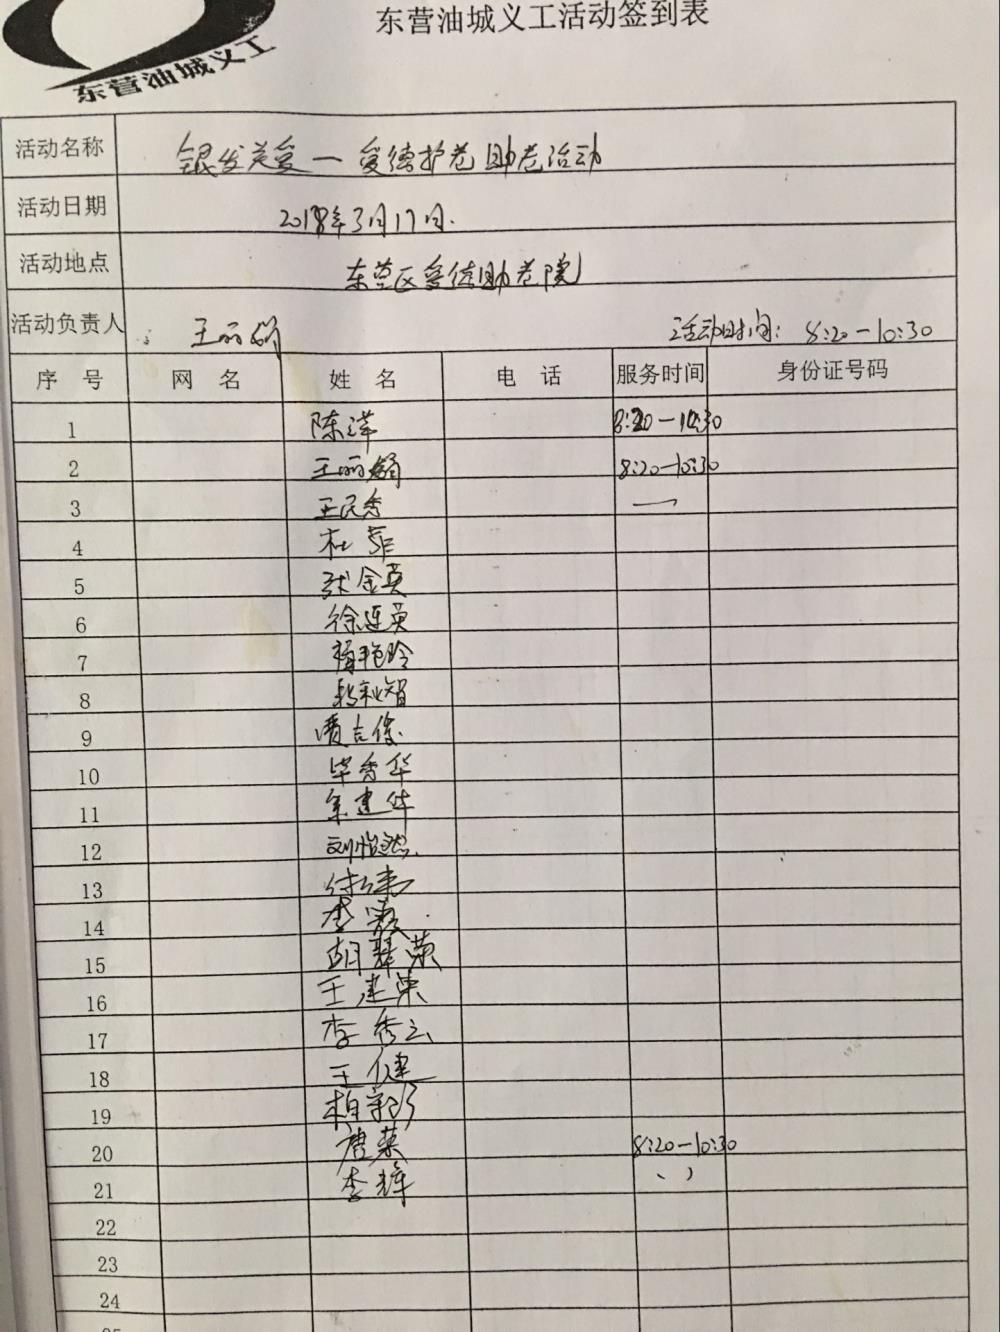 东营油城义工活动签到表
东营油城义工
活动名称 银发关爱一爱德护老助老活动
活动日期 2018年3月17日.
活动地点 东营区爱德助老院
活动负责人: 王丽娟 活动时间: 8:20-10:30
序号 网名 姓名 电话 服务时间 身份证号码
1 陈洋 8:20-10:30
2 王丽娟 8:20-10:30
3 王民秀
4 杜菲
5 张金英
6 徐连英
7 艳玲
8 智
9 吉俊
10 毕秀华
11 建华
12 刘怡然
13 付伟
14 李
15 胡翠荣
16 王建荣
17 李秀云
18 王健
19 柏
20 唐荣 8:20-10:30
21 李辉
22
23
24
25